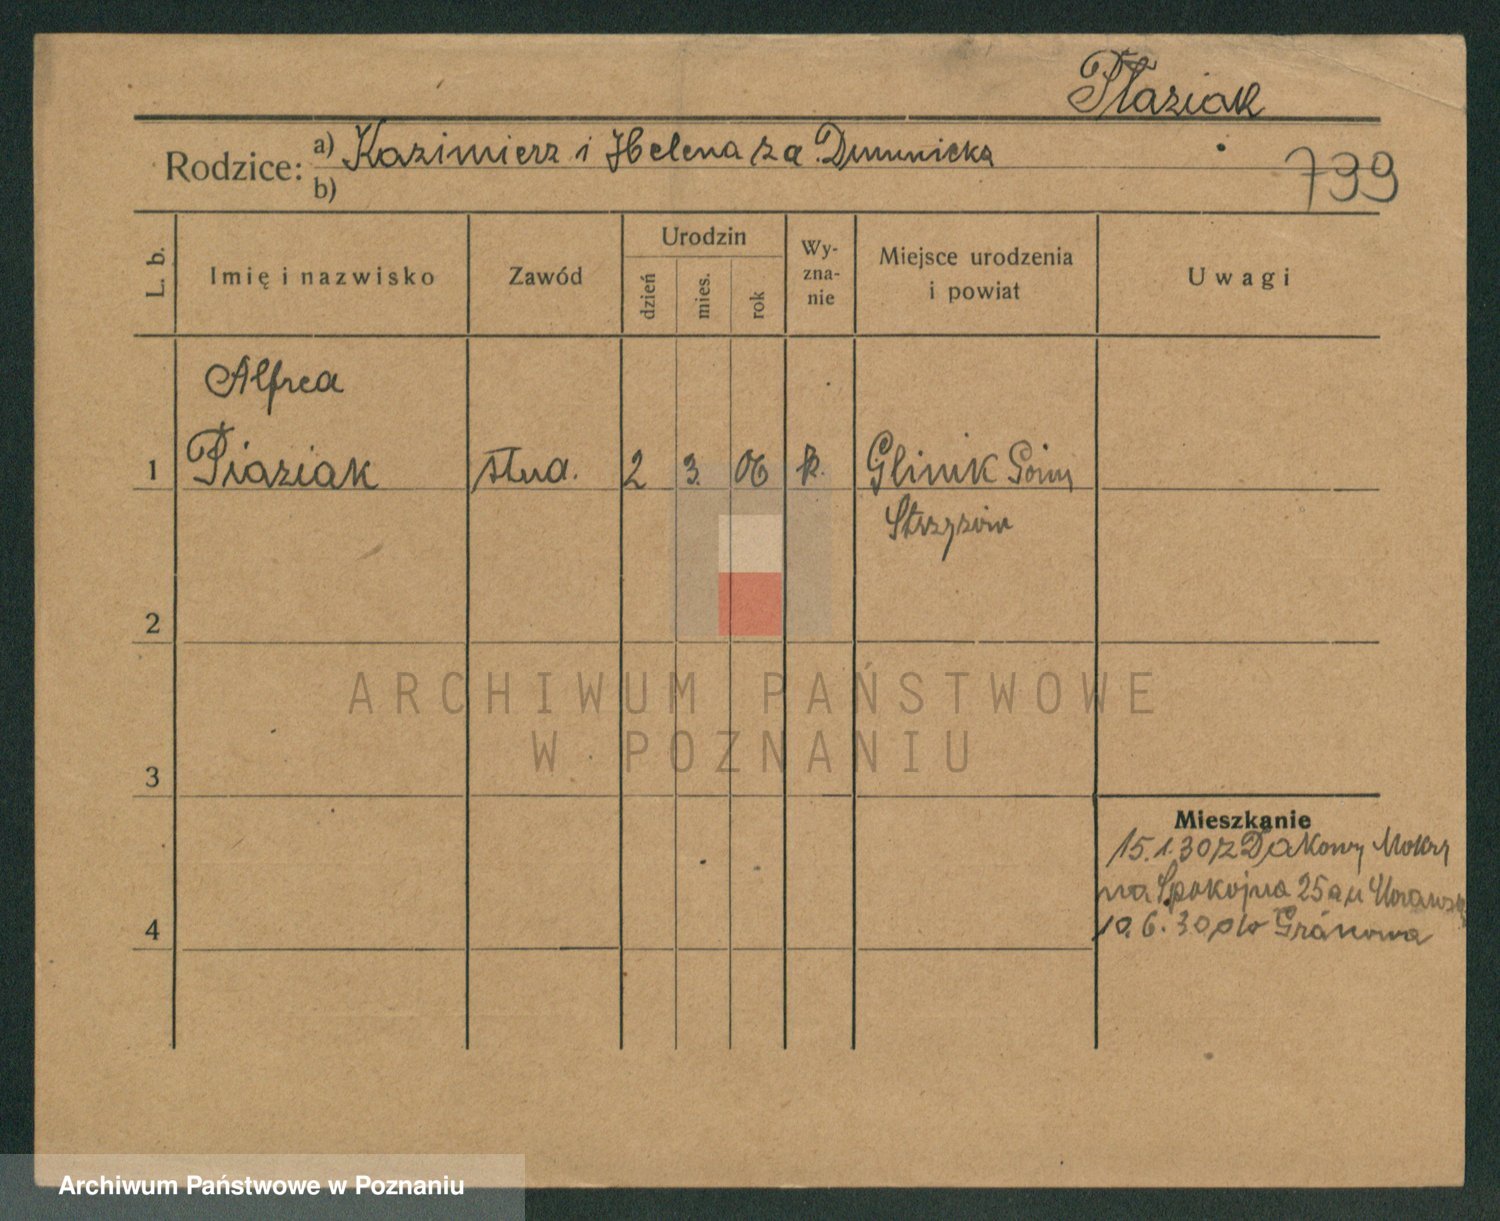 Płaziak
Rodzice: a) Kazimierz i Helena za Dumnicka
b)
739
L. b.
Imię i nazwisko
Zawód
Urodzin
dzień
mies.
rok
Wy-
zna-
nie
Miejsce urodzenia
i powiat
Uwagi
Alfred
1 Płaziak stud. 2 3. 06 k. Glinik Górny
Strzyżów
2
ARCHIWUM PAŃSTWOWE
W POZNANIU
3
Mieszkanie
15.1.30 z Dakowy Mokry
na Spokojna 25a u
4
10.6.30 do Granowa
Archiwum Państwowe w Poznaniu